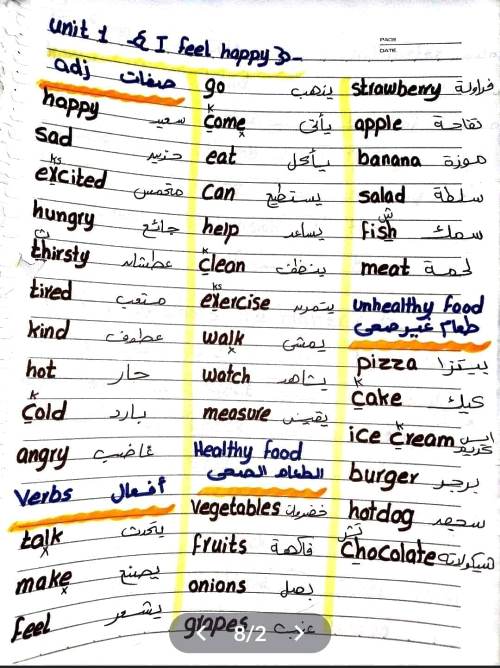 unit 1 -{ I feel happy }-
PAGE
DATE
adj صفات
happy سعيد
sad حزين
ks
excited متحمس
hungry جائع
ث
thirsty عطشان
tired متعب
kind عطوف
hot حار
k
cold بارد
angry غاضب
Verbs أفعال
talk يتحدث
x
make يصنع
x
feel يشعر
go يذهب
k
come يأتى
x
eat يأكل
can يستطيع
help يساعد
k
clean ينظف
ks
exercise يتمرن
walk يمشى
x
watch يشاهد
measure يقيس
Healthy food
الطعام الصحى
vegetables خضروات
fruits فاكهة
onions بصل
grapes عنب
strawberry فراولة
apple تفاحة
banana موزة
salad سلطة
ش
fish سمك
meat لحمة
unhealthy food
طعام غير صحى
pizza بيتزا
k
cake كيك
k
ice cream ايس كريم
burger برجر
hotdog سجق
تش
chocolate شيكولاته
< 8/2 >